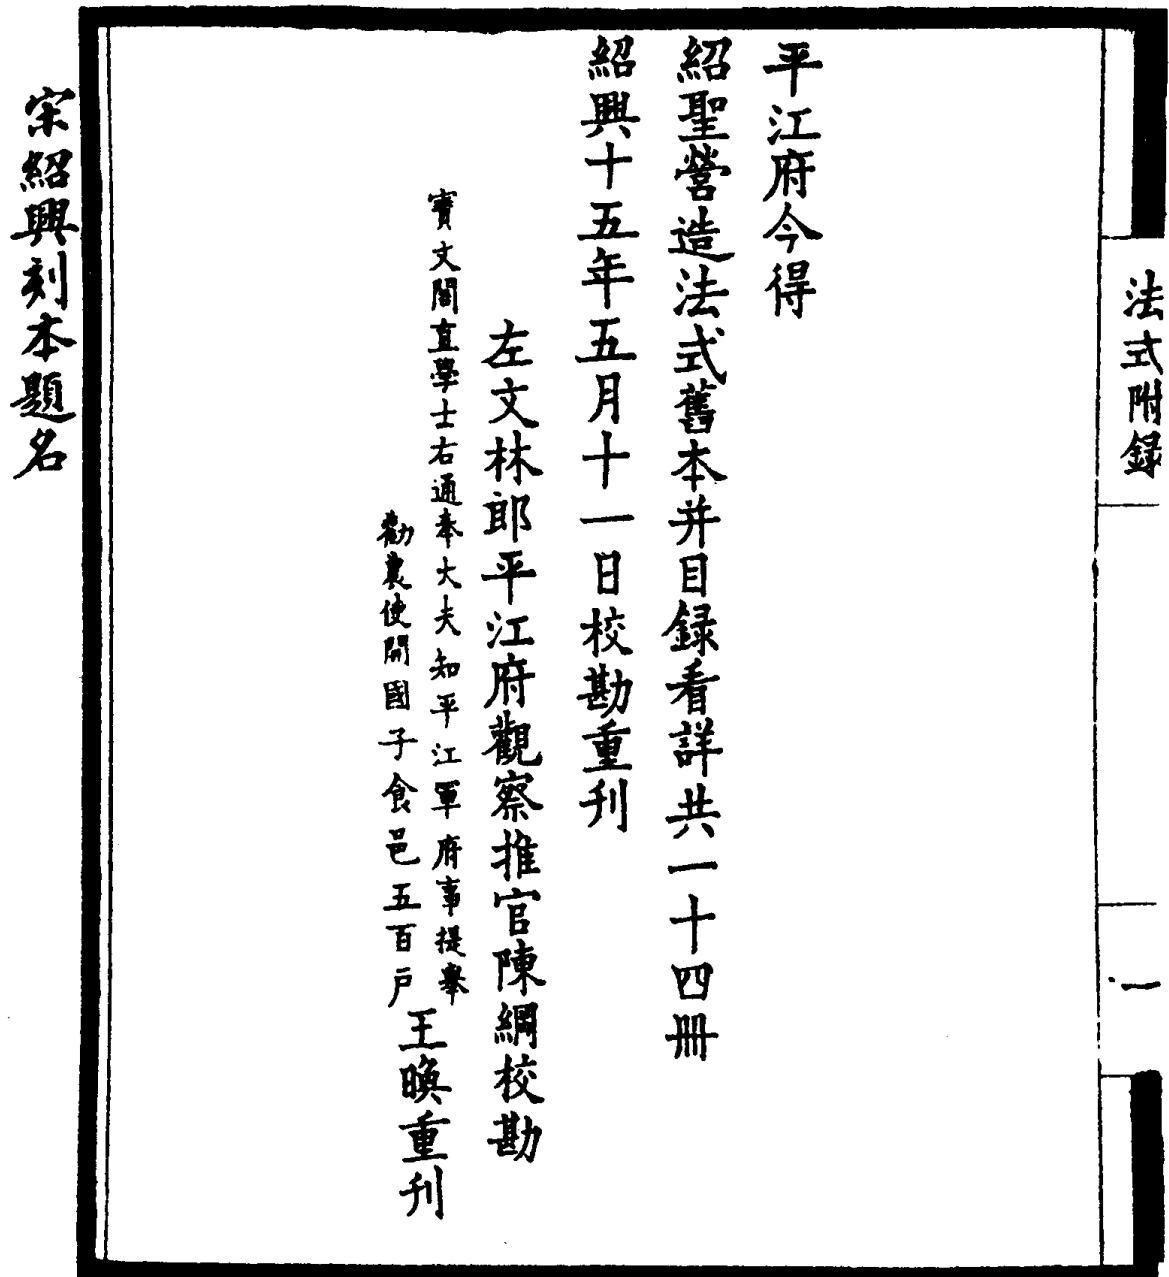 法式附録
一
平江府今得
紹聖營造法式舊本并目録看詳共一十四冊
紹興十五年五月十一日校勘重刊
左文林郎平江府觀察推官陳綱校勘
寶文閣直學士右通奉大夫知平江軍府事提舉
勸農使開國子食邑五百戶
王晚重刊
宋紹興刻本題名